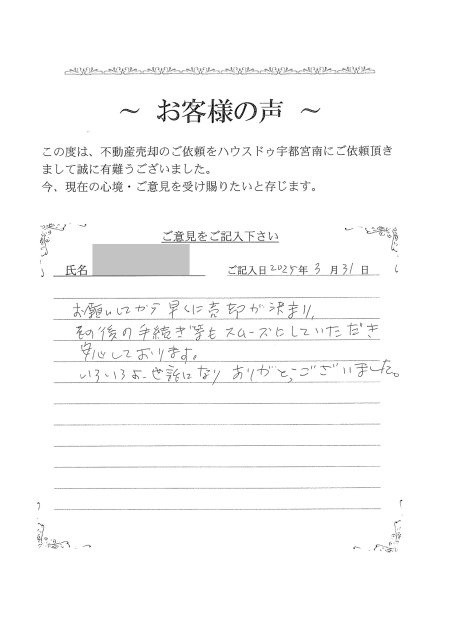 ~ お客様の声 ~
この度は、不動産売却のご依頼をハウスドゥ宇都宮南にご依頼頂き
まして誠に有難うございました。
今、現在の心境・ご意見を受け賜りたいと存じます。
ご意見をご記入下さい
氏名 ご記入日 2024年 3月 31日
お願いしてから早くに売却が決まり、
その後の手続き等もスムーズにしていただき
安心しております。
いろいろお世話になり ありがとうございました。